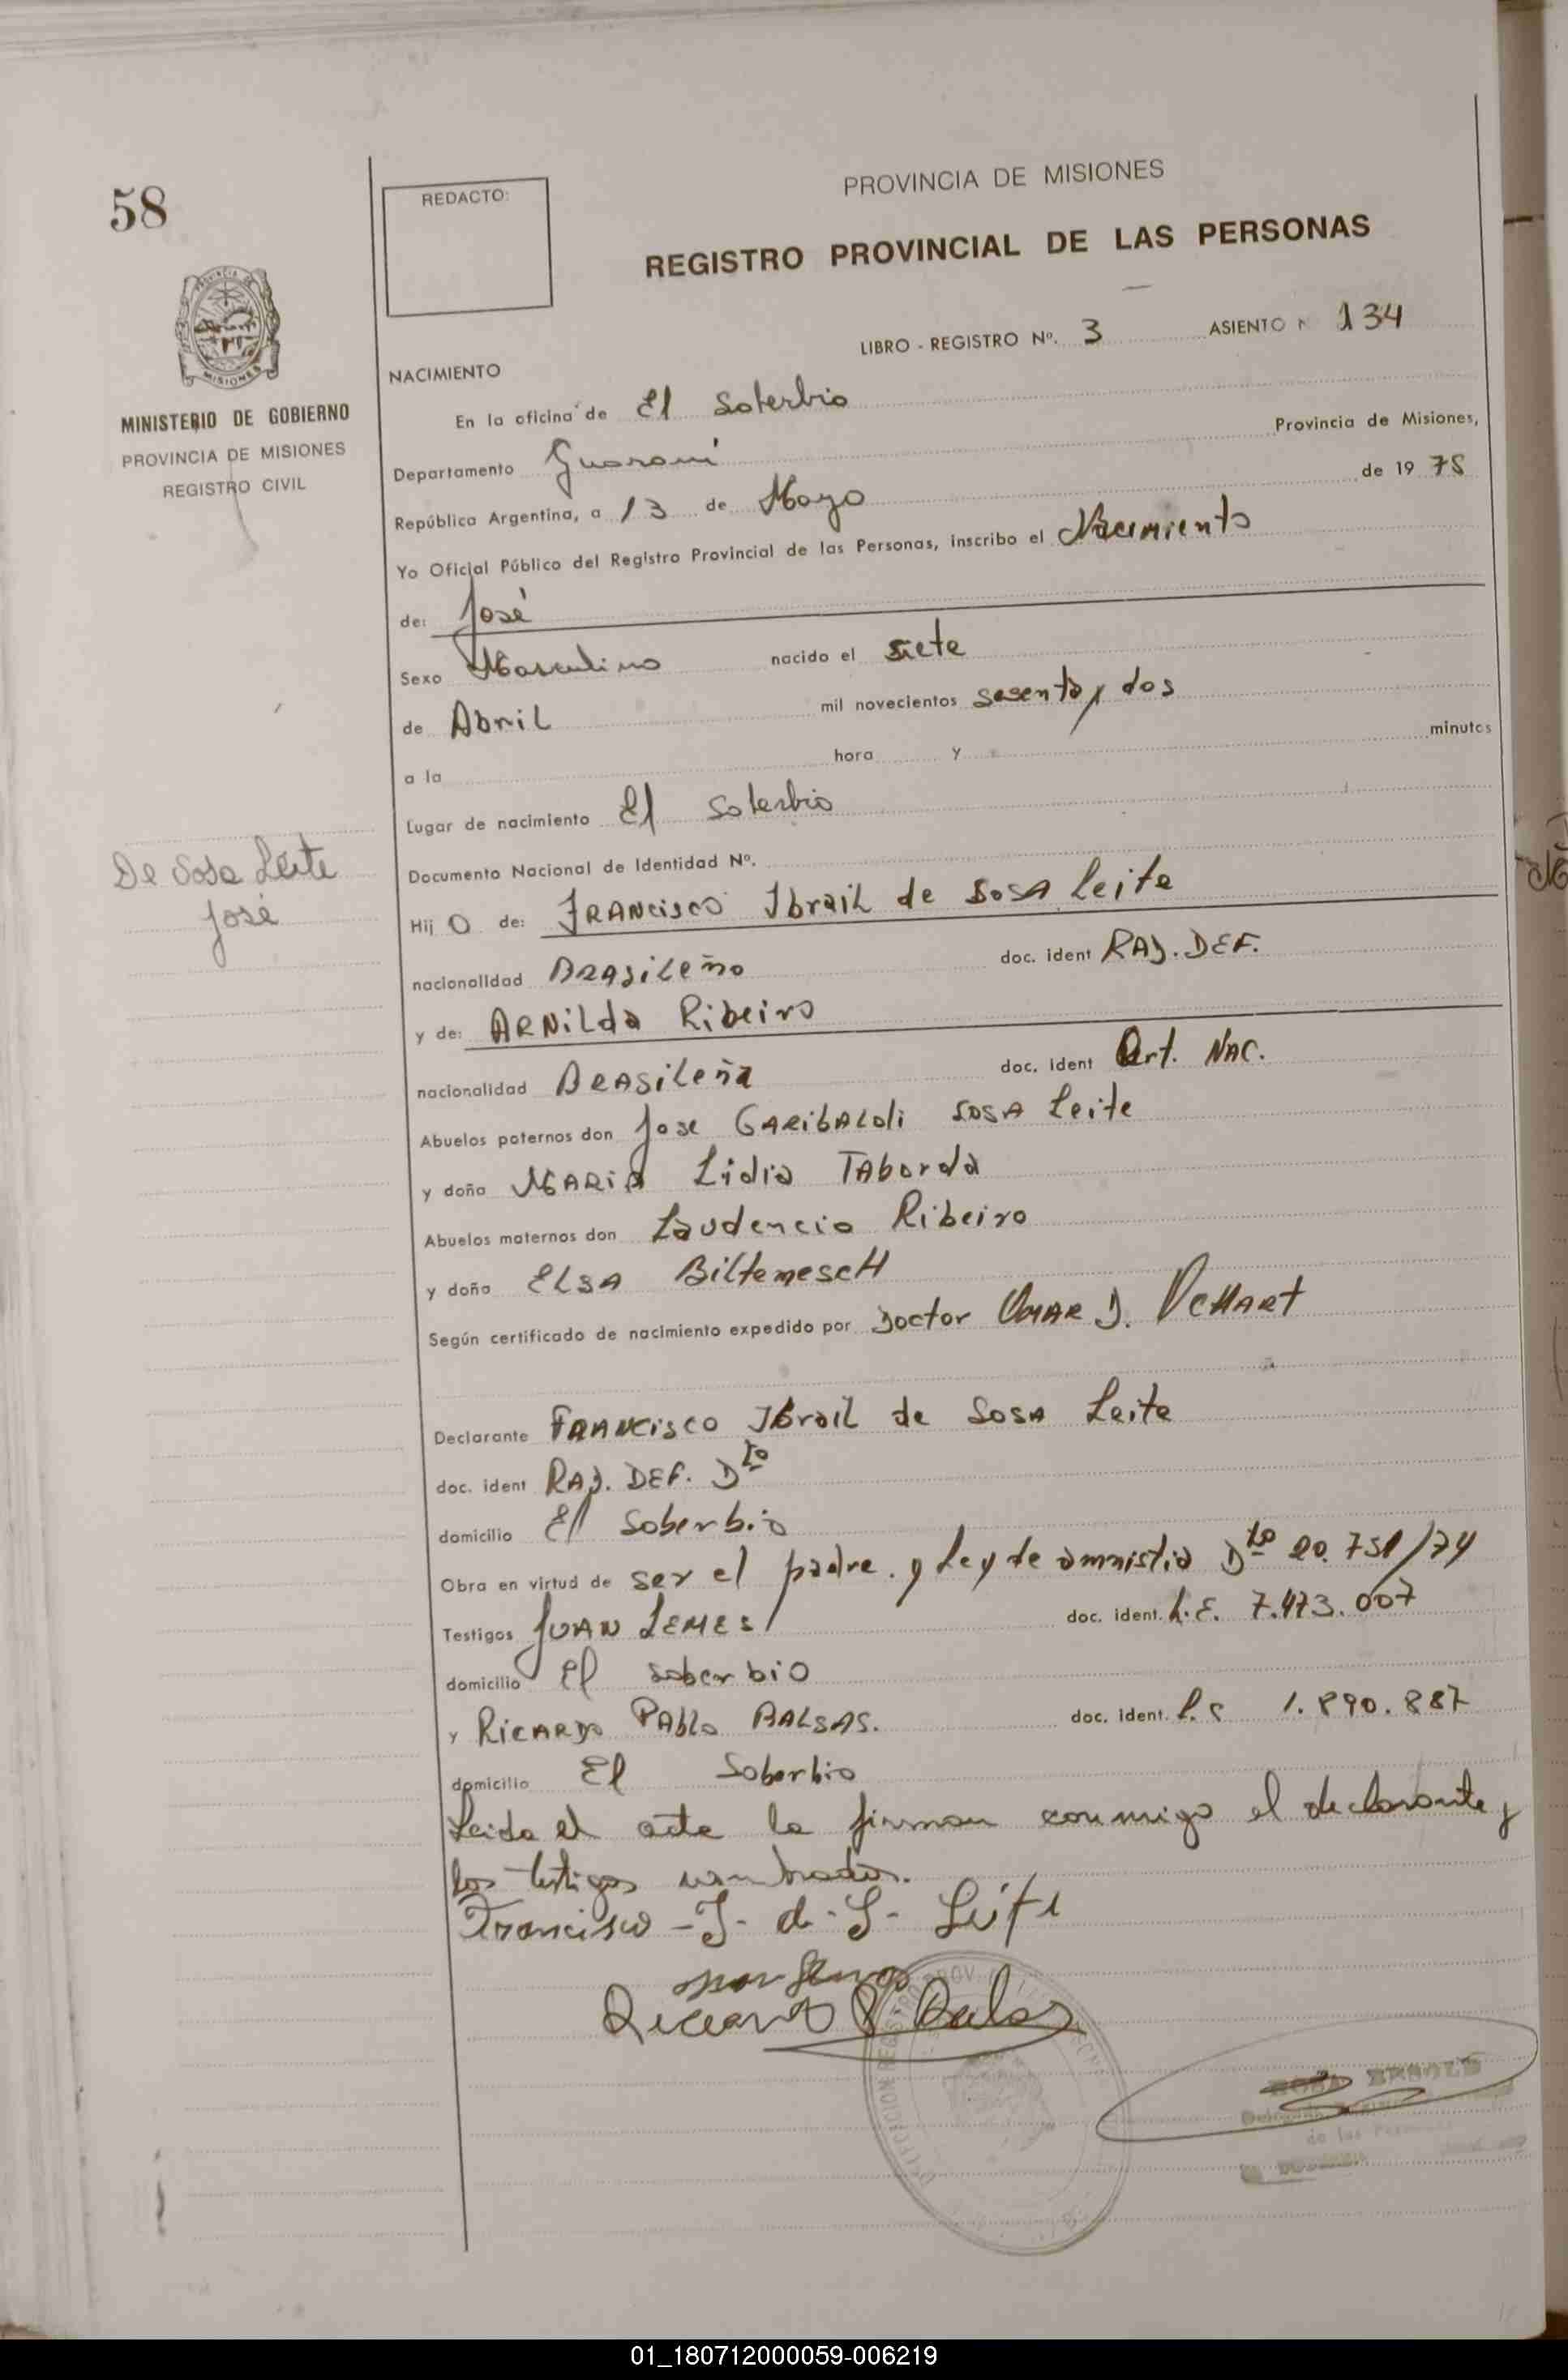 58
REDACTO:
PROVINCIA DE MISIONES
REGISTRO PROVINCIAL DE LAS PERSONAS
PROVINCIA DE
MISIONES
MINISTERIO DE GOBIERNO
PROVINCIA DE MISIONES
REGISTRO CIVIL
LIBRO - REGISTRO Nº. 3 ASIENTO N 134
NACIMIENTO
En la oficina de El Soberbio
Departamento Guaraní Provincia de Misiones,
República Argentina, a 13 de Mayo de 19 75
Yo Oficial Público del Registro Provincial de las Personas, inscribo el Nacimiento
de: José
Sexo Masculino nacido el siete
de Abril mil novecientos sesenta y dos
a la hora y minutos
Lugar de nacimiento El Soberbio
Documento Nacional de Identidad Nº.
De Sosa Leite
José
Hij o de: Francisco Ibrail de Sosa Leite
nacionalidad Brasileño doc. ident RAD. DEF.
y de: Arnilda Ribeiro
nacionalidad Brasileña doc. ident Art. NAC.
Abuelos paternos don Jose Garibaldi Sosa Leite
y doña Maria Lidia Taborda
Abuelos maternos don Laudencio Ribeiro
y doña Elsa Biltemesch
Según certificado de nacimiento expedido por Doctor Omar D.
Declarante Francisco Ibrail de Sosa Leite
doc. ident RAD. DEF. Dto
domicilio El Soberbio
Obra en virtud de ser el padre. y Ley de amnistia Dto 20.751/74
Testigos Juan Lemes doc. ident. L.E. 7.473.007
domicilio El Soberbio
y Ricardo Pablo Balsas. doc. ident. L.E 1.890.887
domicilio El Soberbio
Leida el acta la firman conmigo el declarante y
los testigos nombrados.
Francisco - I - d - S - Leite
01_180712000059-006219